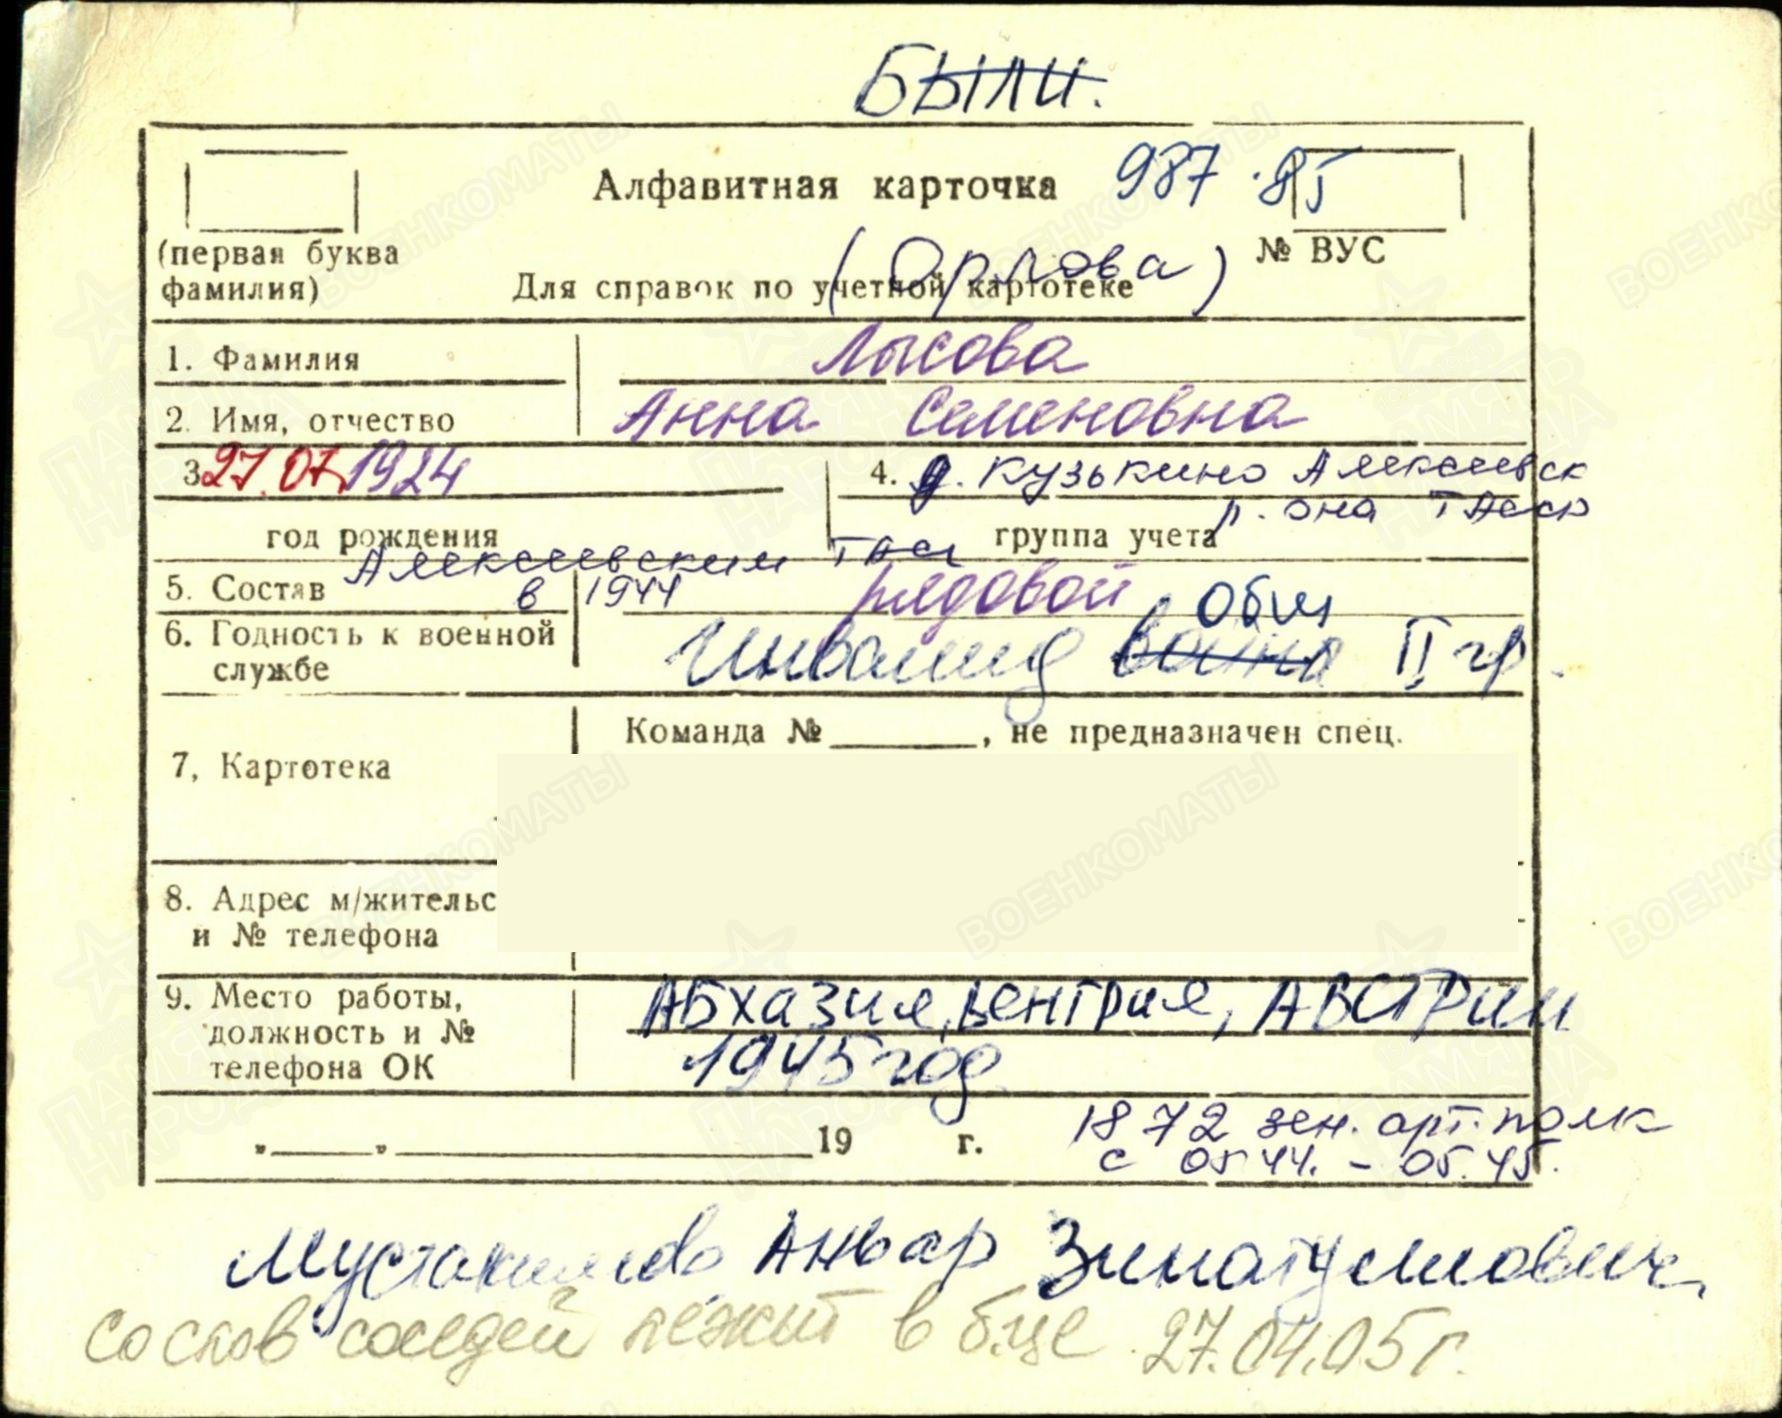 БЫЛИ.
Алфавитная карточка 987.85
(первая буква фамилии)
№ ВУС
(Орлова)
Для справок по учетной картотеке
1. Фамилия Лысова
2. Имя, отчество Анна Семеновна
3 27.07.1924
4. д. Кузькино Алексеевск
р. она ТАССР
год рождения
группа учета
Алексеевским
5. Состав в 1944 рядовой
Общ
6. Годность к военной службе Инвалид война II гр.
Команда № , не предназначен спец.
7, Картотека
8. Адрес м/жительс
и № телефона
9. Место работы, должность и № телефона ОК
АБХАЗИЯ, ВЕНГРИЯ, АВСТРИИ
1945 год
„ " 19 г.
1872 зен. арт. полк
с 05 44. - 05.45.
Анвар
со слов соседей лежит в б-це 27.04.05 г.
ПАМЯТЬ НАРОДА
ВОЕНКОМАТЫ